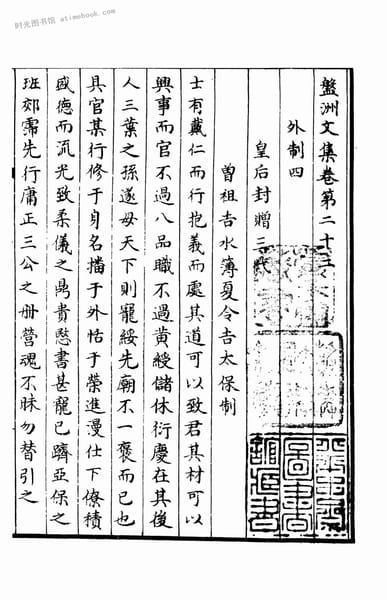 时光图书馆 atimebook.com
盤洲文集卷第二十三
外制四
皇后封贈三代
曾祖吉水簿夏令吉太保制
士有戴仁而行抱義而處其道可以致君其材可以
興事而官不過八品職不過黄綬儲休衍慶在其後
人三葉之孫遂母天下則寵綏先廟不一褒而已也
具官某行修于身名播于外恬于榮進漫仕下僚積
盛德而流光致柔儀之鼎貴愍書甚寵已躋亞保之
班郊霈先行庸正三公之冊營魂不昧勿替引之